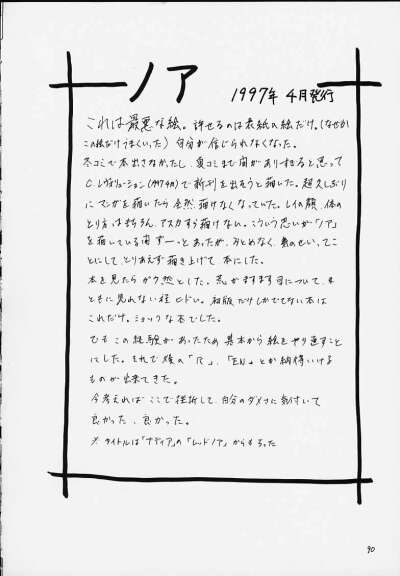 ノア
1997年 4月発行
これは最悪な絵。許せるのは表紙の絵だけ。(なぜか
この絵だけうまくいった) 自分が信じられなくなった。
冬コミで本出さなかったし、夏コミまで間がありすぎると思って
C.レヴォリューション(1997 4月)で新刊を出そうと描いた。超久しぶり
にマンガを描いたら全然、描けなくなっていた。レイの顔、体の
とり方はもちろん、アスカすら描けない。こういう思いが「ノア」
を描いている間ずーっとあったが、みとめなく、気のせい、てこ
とにして、とりあえず描き上げて本にした。
本を見たらがく然とした。荒がますます目について、ま
ともに見れない程ヒドい。初版だけしかでてない本は
これだけ。ショックな本でした。
でもこの経験があったため基本から絵をやり直すこと
にした。それで後の「R」、「EN」とか納得いける
ものが出来てきた。
今考えればここで挫折して、自分のダメさに気付いて
良かった、良かった。
タイトルは「ナディア」の「レッドノア」からもらった
90